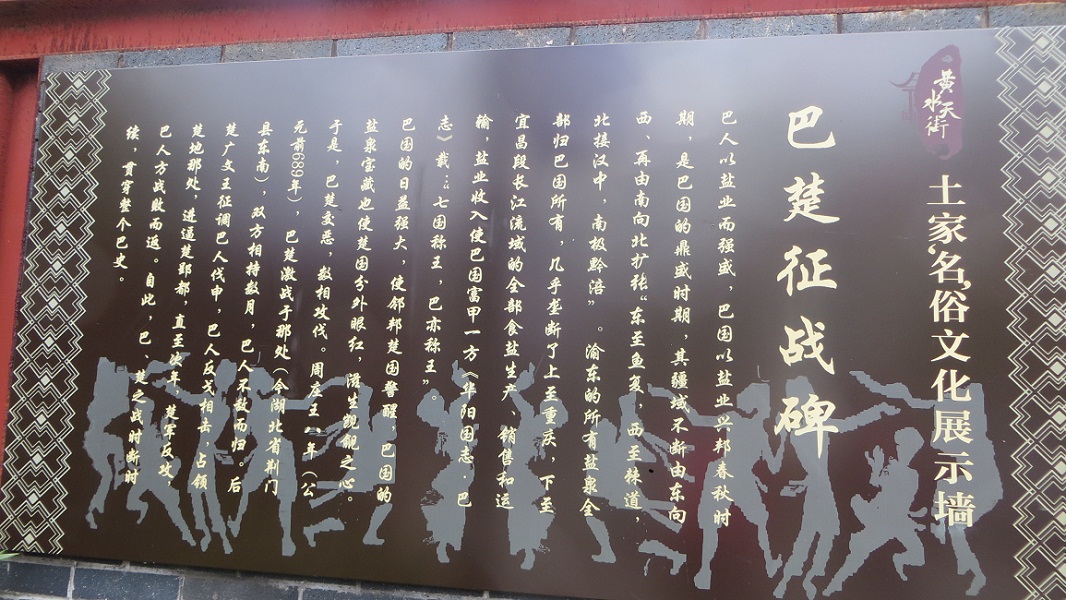 黄水天街
土家名俗文化展示墙
巴楚征战碑
巴人以盐业而强盛，巴国以盐业兴邦春秋时
期，是巴国的鼎盛时期，其疆域不断由东向
西、再由南向北扩张“东至鱼复，西至棘道，
北接汉中，南极黔涪”。渝东的所有盐泉全
部归巴国所有，几乎垄断了上至重庆，下至
宜昌段长江流域的全部食盐生产、销售和运
输，盐业收入使巴国富甲一方《华阳国志·巴
志》载：“七国称王，巴亦称王”。
巴国的日益强大，使邻邦楚国警醒，巴国的
盐泉宝藏也使楚国分外眼红，滋生觊觎之心。
于是，巴楚交恶，数相攻伐。周庄王八年（公
元前689年），巴楚激战于那处（今湖北省荆门
县东南），双方相持数月，巴人不敌而归。后
楚广文王征调巴人伐申，巴人反戈相击，占领
楚地那处，进逼楚郢都，直至次年，楚军反攻，
巴人方战败而返。自此，巴、楚之战时断时
续，贯穿整个巴史。